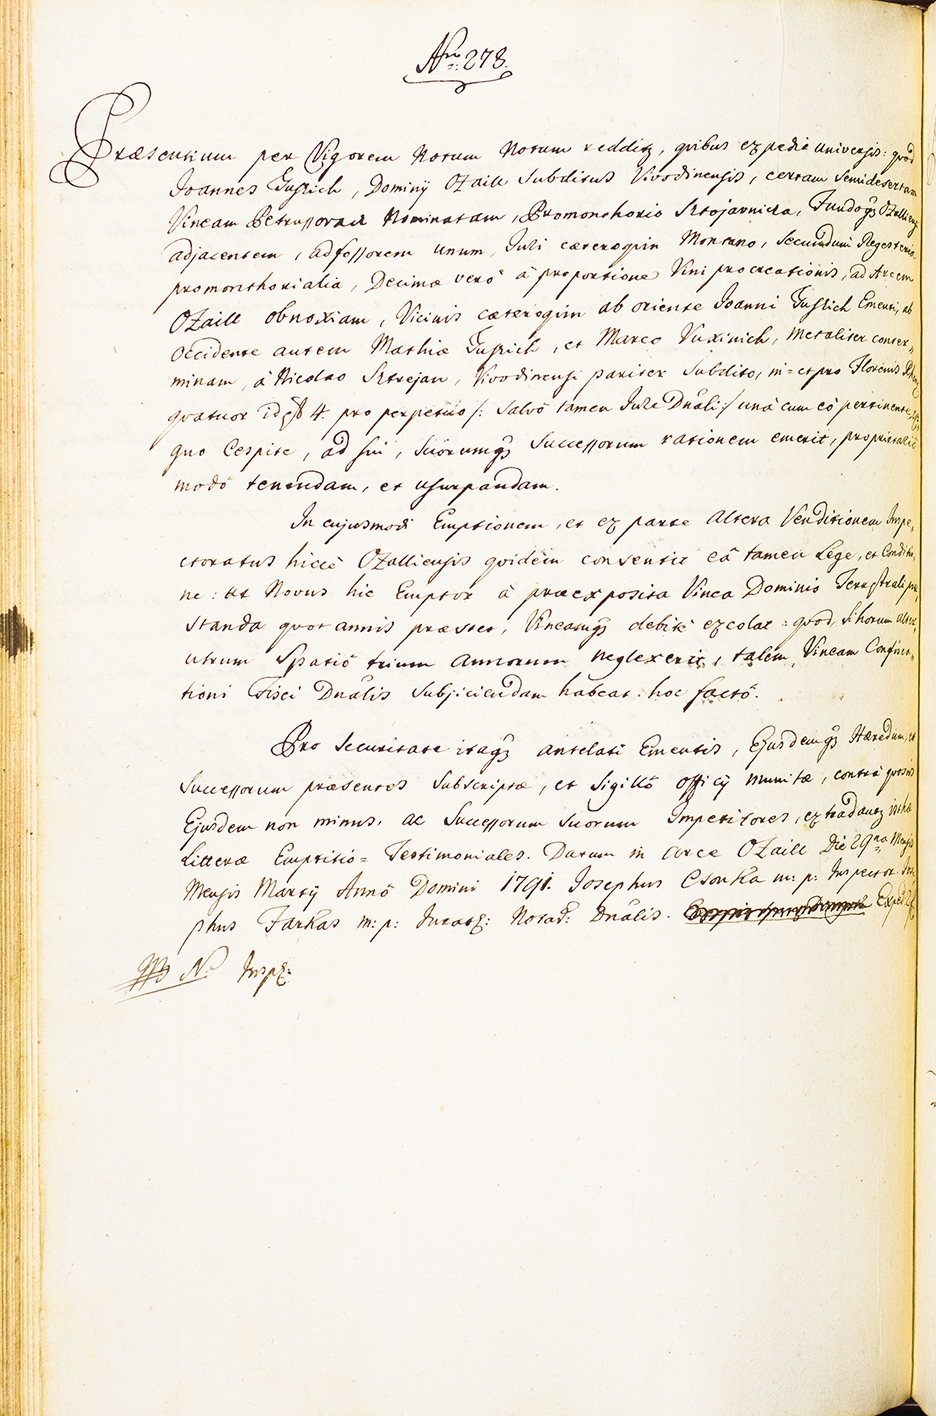 Nro: 278.
Præsentium per Vigorem Notum Notum redditz, quibus expedit universis: quod
Joannes Gusich, Dominÿ Ozaill Subditus Vivodinensis, certam Semidesertam
Vineam Petrussovacz Nominatam, Promonthorio Sztojavnicza, Fundoqz Ozalliensi
adjacentem, ad fossorem unum, Juri cæteroquin Montano, secundum Regesteria
promonthorialia, Decimæ verò à proportione Vini procreationis, ad Arcem
Ozaill obnoxiam, Vicinis cæteroqin ab oriente Joanni Gusich Ementi, ab
occidente autem Mathiæ Gusich, et Marco Vuxinich, Metaliter conter„
minam, à Nicolao Sztrejan, Vivodinensi pariter Subdito, in= et pro Florenis
quatuor id est 4. pro perpetuo /: salvô tamen Jure Dnāli :/ unà cum eô pertinente,
quo Cespite, ad sui, Suorumqz Successorum rationem emerit, proprietatis
modô tenendam, et usurpandam.
In cujusmodi Emptionem, et ex parte altera Venditionem Inspe„
ctoratus hicce Ozalliensis quidem consentit eâ tamen Lege, et Conditio„
ne: ut Novus hic Emptor à præexposita Vinea Dominio Terrestrali præ„
standa quot annis præstet, Vineamqz debitè excolat: quod, si horum alter„
utrum Spatiô trium annorum neglexerit, talem Vineam Confisca„
tioni Fisci Dnālis Subjiciendam habeat hoc factô.
Pro Securitate itaqz antelati Ementis, Ejusdemqz Hæredum, et
Successorum præsentes Subscriptæ, et Sigillô officÿ munitæ, contrà quosvis
Ejusdem non minus, ac Successorum Suorum Impetitores, extradantz isthæ
Litteræ Emptitio= Testimoniales. Datum in Arce Ozaill Die 29na Mensis
Mensis Martÿ Annô Domini 1791. Josephus Csonka m: p: Inspector. Jose„
phus Farkas m: p: Juratq: Notarq: Dnālis. Exped:
No Insp: